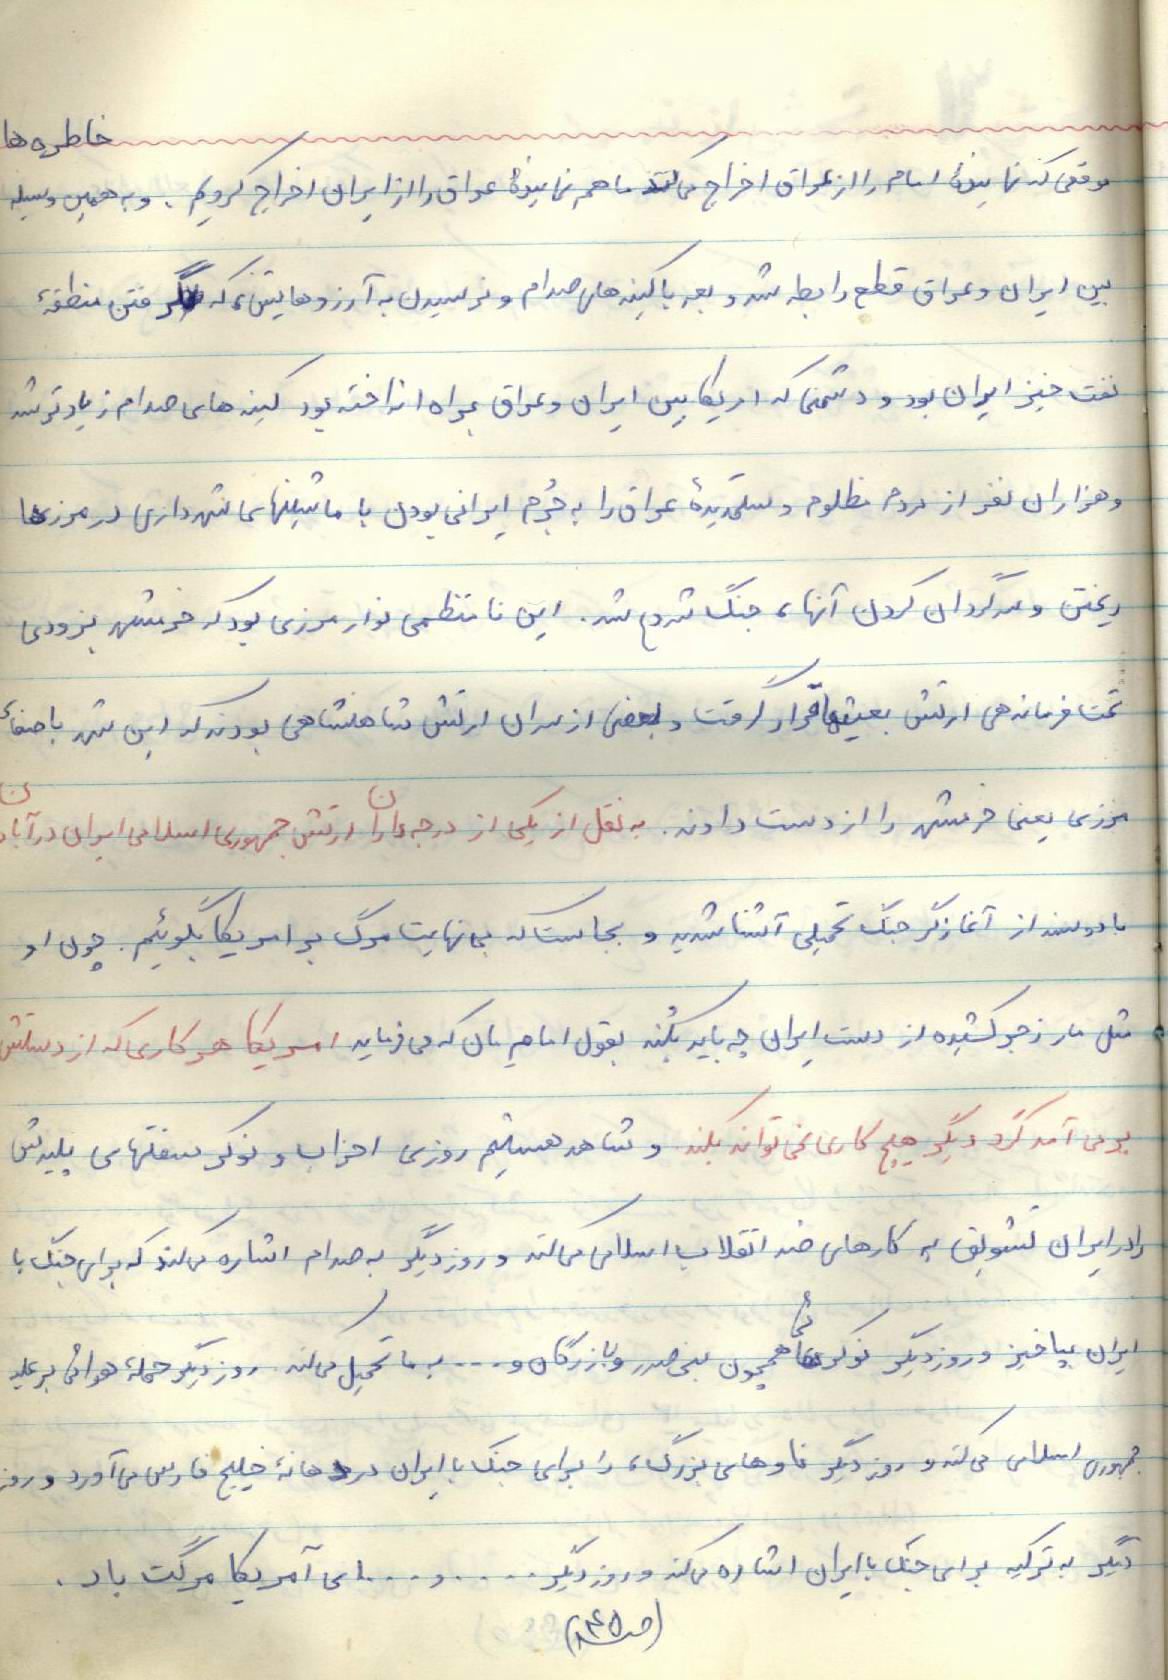 خاطره ها
موقعی که نمایندهٔ امام را از عراق اخراج می کنند ما هم نمایندهٔ عراق را از ایران اخراج کردیم. و به همین وسیله
بین ایران و عراق قطع رابطه شد و بعد با کینه های صدام و نرسیدن به آرزوهایش، که گرفتن منطقهٔ
نفت خیز ایران بود و دشمنی که امریکا بین ایران و عراق براه انداخته بود کینه های صدام زیادتر شد
و هزاران نفر از مردم مظلوم و ستمدیدهٔ عراق را به جُرم ایرانی بودن با ماشینهای شهرداری در مرزها
ریختن و سرگردان کردن آنها، جنگ شروع شد. این نامنظمی نوار مرزی بود که خرمشهر بزودی
تحت فرماندهی ارتش بعثیها قرار گرفت و بعضی از سران ارتش شاهنشاهی بودند که این شهر باصفای
مرزی یعنی خرمشهر را از دست دادند. به نقل از یکی از درجه داران ارتش جمهوری اسلامی ایران در آبادان
با دو سند از آغازگر جنگ تحمیلی آشنا شدید و بجاست که بی نهایت مرگ بر امریکا بگوئیم. چون او
مثل مار زجر کشیده از دست ایران چه باید بکند بقول امام مان که می فرماید امریکا هر کاری که از دستش
بر می آمد کرد دیگر هیچ کاری نمی تواند بکند و شاهد هستیم روزی احزاب و نوکر صفتهای پلیدش
را در ایران تشویق به کارهای ضد انقلاب اسلامی می کند و روز دیگر به صدام اشاره می کند که برای جنگ با
ایران بپاخیز و روز دیگر نوکرهائی همچون بنی صدر و بازرگان و .... به ما تحمیل می کند. روز دیگر حملهٔ هوائی بر علیه
جمهوری اسلامی می کند و روز دیگر ناوهای بزرگ، را برای جنگ با ایران در دهانهٔ خلیج فارس می آورد و روز
دیگر به ترکیه برای جنگ با ایران اشاره می کند و روز دیگر ...... و .... ای آمریکا مرگت باد.